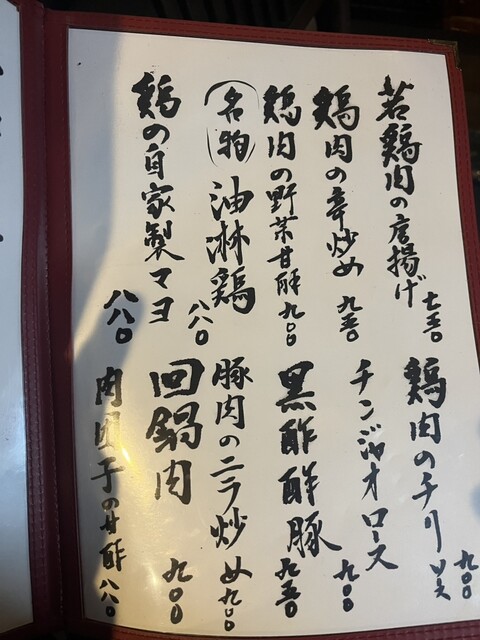 若鶏肉の唐揚げ 七五〇
鶏肉の辛炒め 九五〇
鶏肉の野菜甘酢 九〇〇
(名物)油淋鶏 八八〇
鶏の自家製マヨ 八八〇
鶏肉のチリソース 九〇〇
チンジャオロース 九〇〇
黒酢酢豚 九五〇
豚肉のニラ炒め 九〇〇
回鍋肉 九〇〇
肉団子の甘酢 八八〇